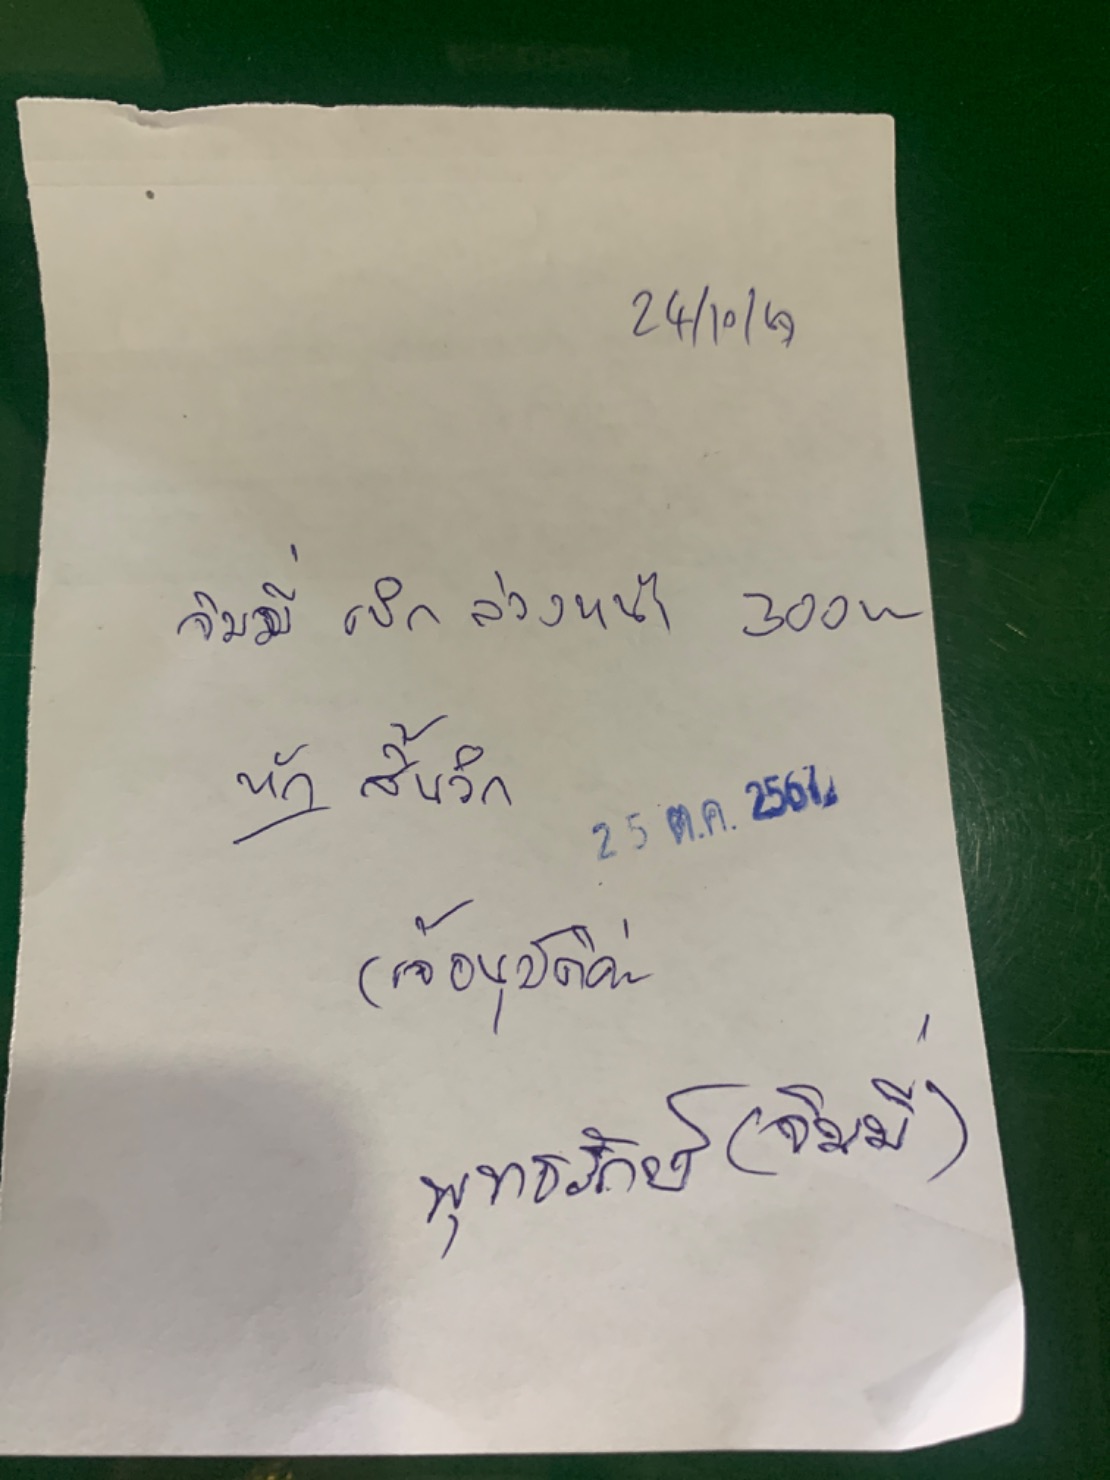 24/10/67
จิมมี่ เบิก ล่วงหน้า 300บ
หัก สิ้นวิก
25 ต.ค. 2567
(เจ๊อนุมัติค่ะ
พุทธรักษ์ (จิมมี่)